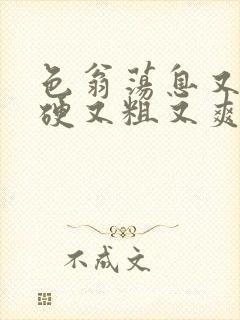 色翁荡息又
硬又粗又爽
不成文